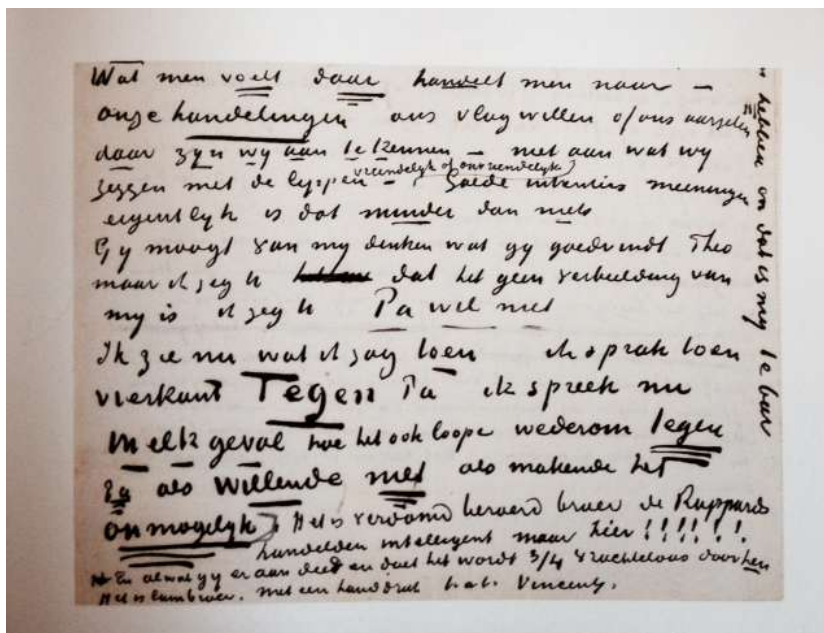 Wat men voelt daar handelt men naar –
onze handelingen ons vlug willen of ons aarzelen
daar zyn wy aan te kennen – niet aan wat wy
zeggen met de lippen – vriendelyk of onvriendelyk goede intenties meeningen
eigentlyk is dat minder dan niets
Gy moogt van my denken wat gy goedvindt Theo
maar ik zeg U dat het geen verbeelding van
my is ik zeg U Pa wil niet
Ik zie nu wat ik zag toen ik sprak toen
vierkant Tegen Pa ik spreek nu
in elk geval hoe het ook loope wederom tegen
Pa als willende niet als makende het
onmogelyk. Het is verdomd beroerd broer de Rappards
handelden intelligent maar hier !!!!!!
En al wat gy er aan deed en doet het wordt 3/4 vruchteloos door hen
Het is lam broer. met een handdruk t.à.t. Vincent.
hebben en dat is my te bar